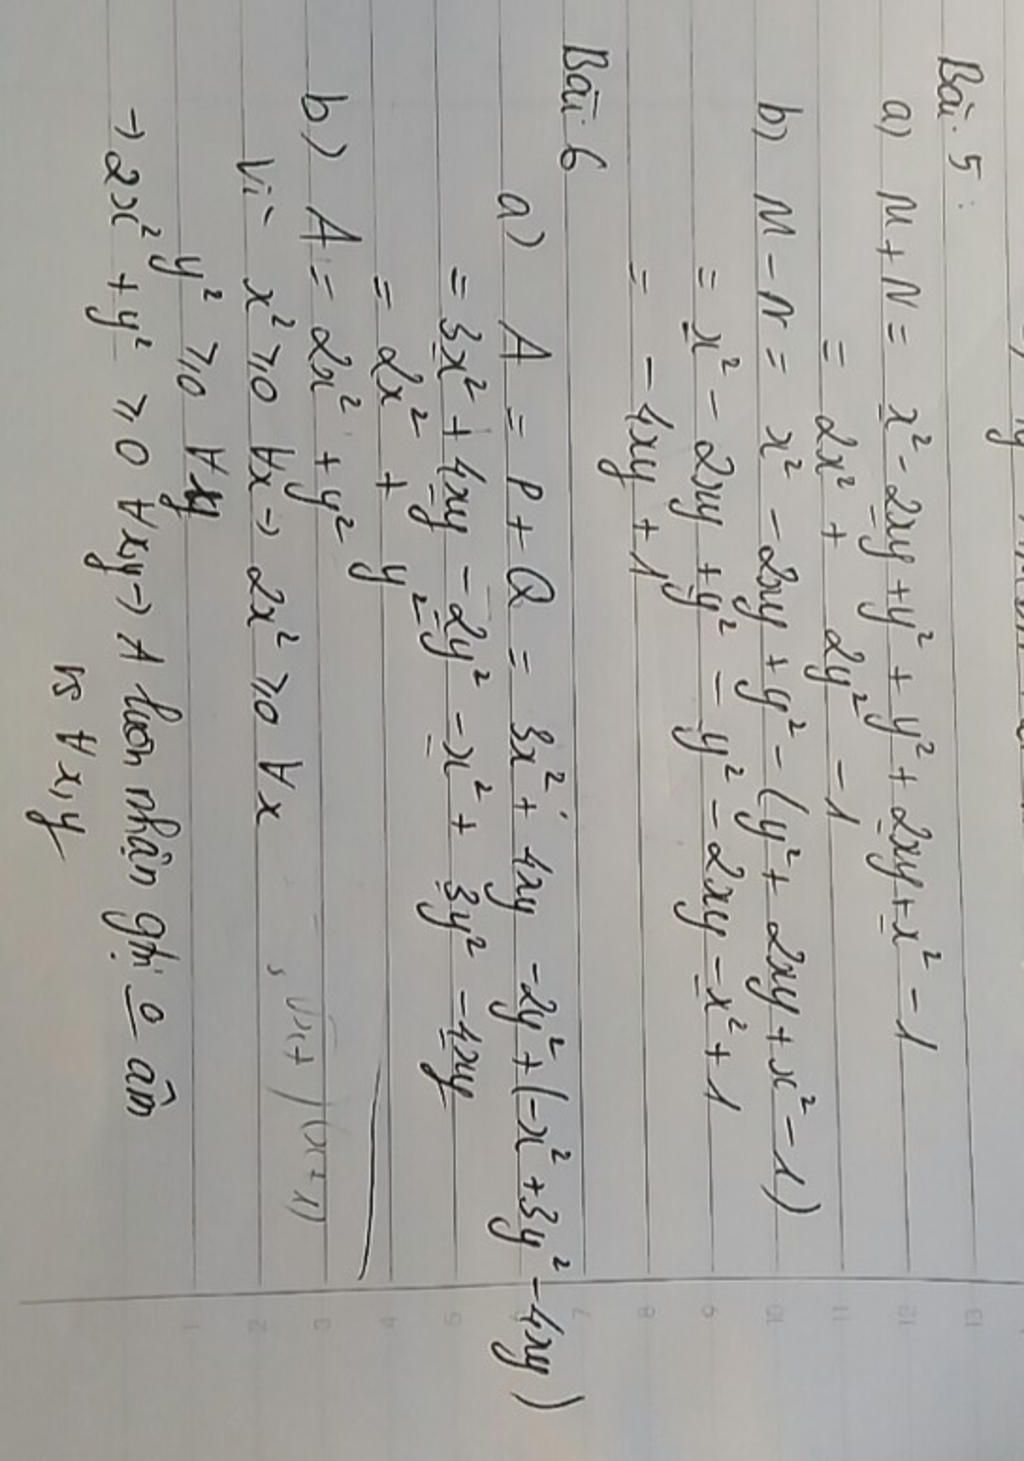 Bài 5:
a) M + N = x² - 2xy + y² + y² + 2xy + x² - 1
= 2x² + 2y² - 1
b) M - N = x² - 2xy + y² - (y² + 2xy + x² - 1)
= x² - 2xy + y² - y² - 2xy - x² + 1
= - 4xy + 1
Bài 6
a) A = P + Q = 3x² + 4xy - 2y² + (-x² + 3y² - 4xy)
= 3x² + 4xy - 2y² - x² + 3y² - 4xy
= 2x² + y²
b) A = 2x² + y²
Vì x² ≥ 0 ∀x → 2x² ≥ 0 ∀x
y² ≥ 0 ∀y
→ 2x² + y² ≥ 0 ∀x,y → A luôn nhận gtrị o âm
vs ∀x,y
1 2 3 4 5 6 7 8 9 10 11 12 13